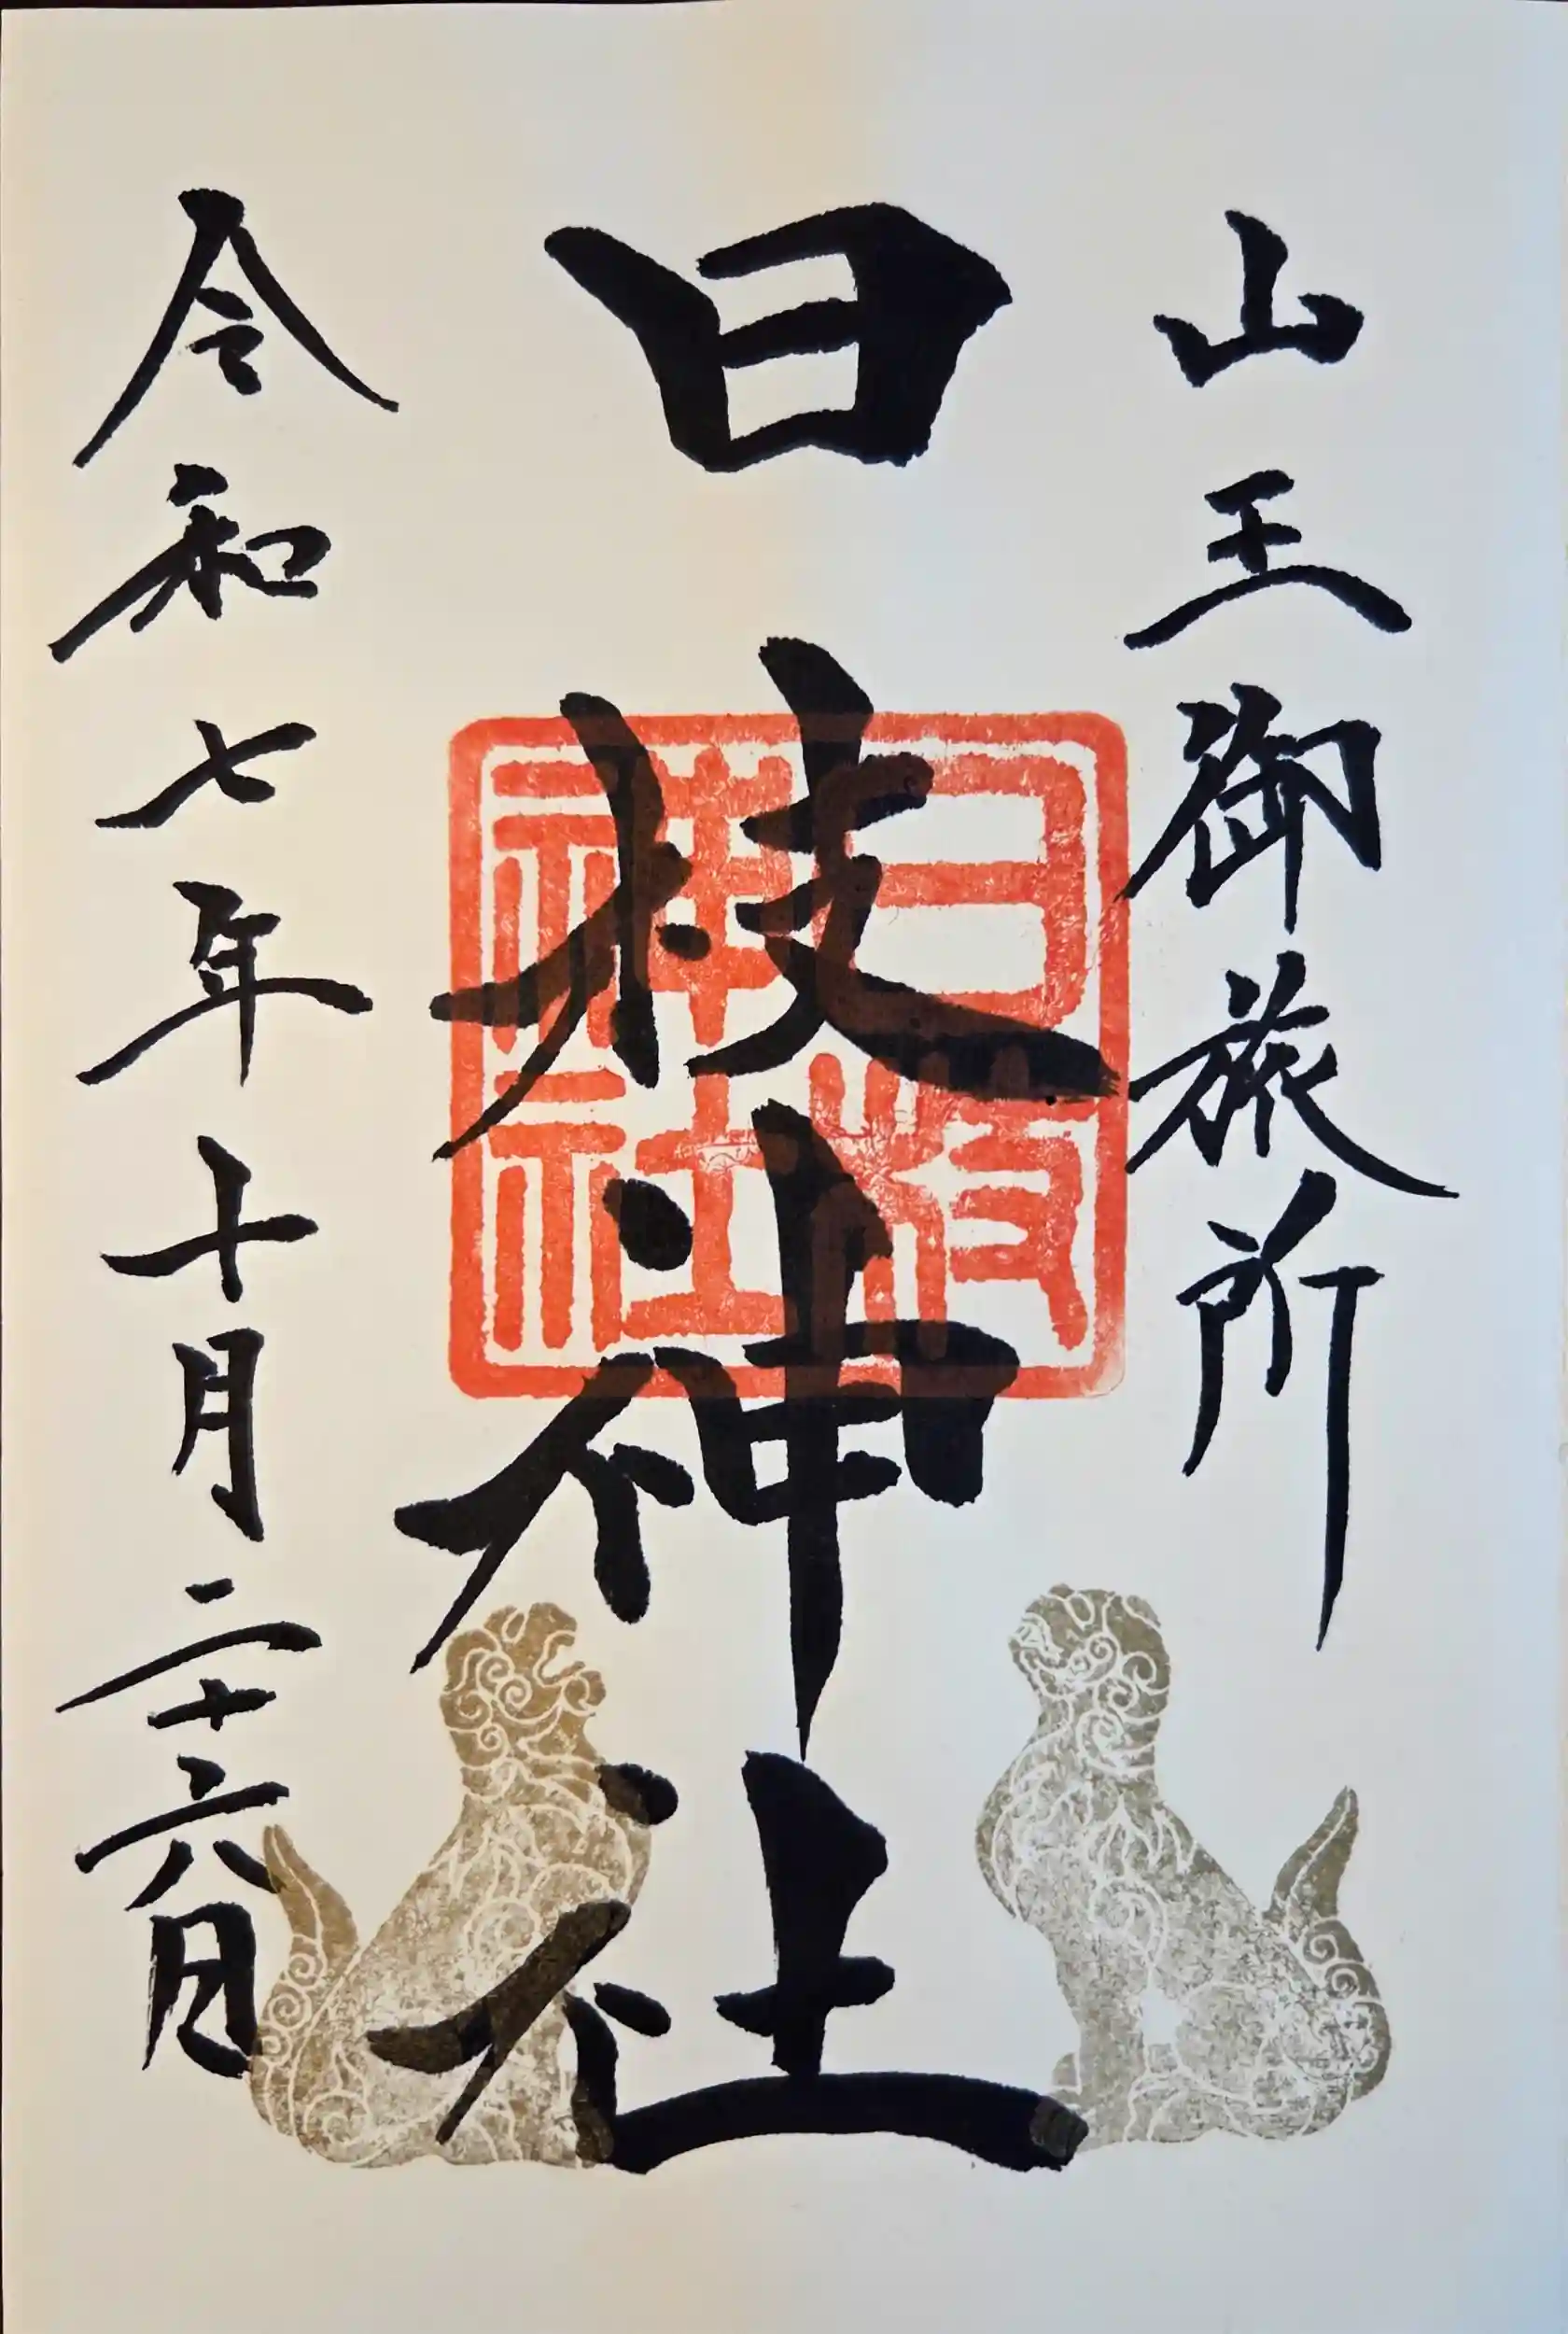 山王御旅所
日枝神社
日枝神社
令和七年十月二十六日